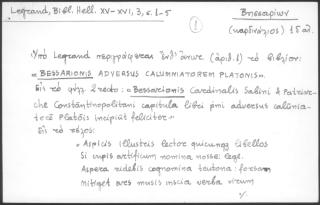 Legrand, Bibl. Hell. XV-XVI, 3, σ. 1-5
①
Βησσαρίων
(καρδινάλιος) 15 αἰ.
Ὑπὸ Legrand περιγράφεται ἔνθ' ἄνωτ. (ἀριθ. 1) τὸ βιβλίον:
«BESSARIONIS ADVERSUS CALUMNIATOREM PLATONIS».
Εἰς τὸ φύλλ. 2 recto: «Bessarionis Cardinalis Sabini & Patriar-
che Constantinopolitani capitula libri primi adversus calunia-
torē Platōis incipiūt feliciter»
Εἰς τὸ τέλος:
«Aspicis illustris lector quicunq; libellos
Si cupis artificum nomina nosse: lege.
Aspera ridebis cognomina teutona: forsan
Mitiget ars musis inscia verba virum